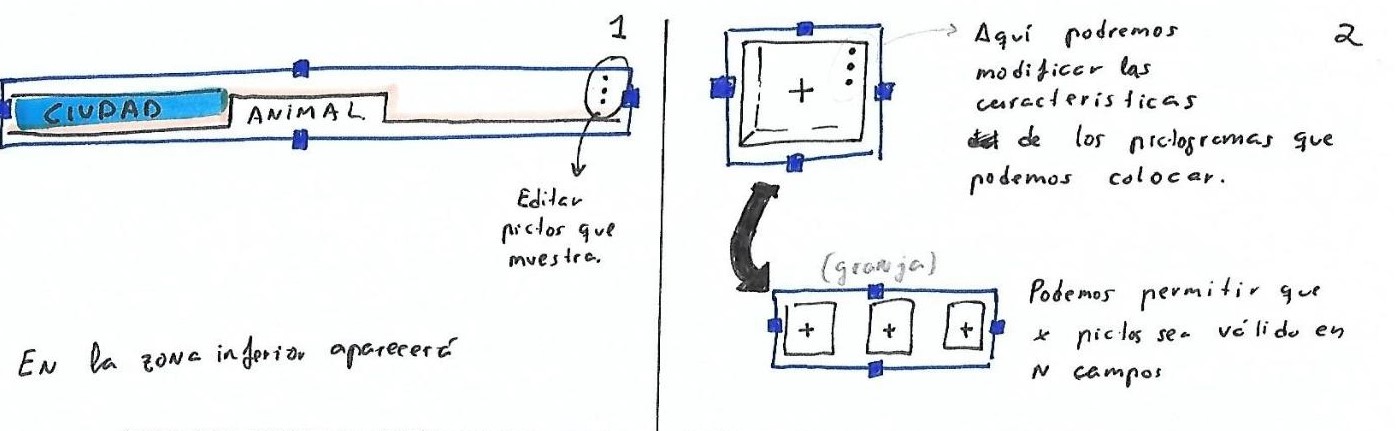 1
CIUDAD
ANIMAL
Editar
pictos que
muestra.
En la zona inferior aparecerá
2
Aquí podremos
modificar las
características
de los pictogramas que
podemos colocar.
(granja)
Podemos permitir que
x pictos sea válido en
N campos